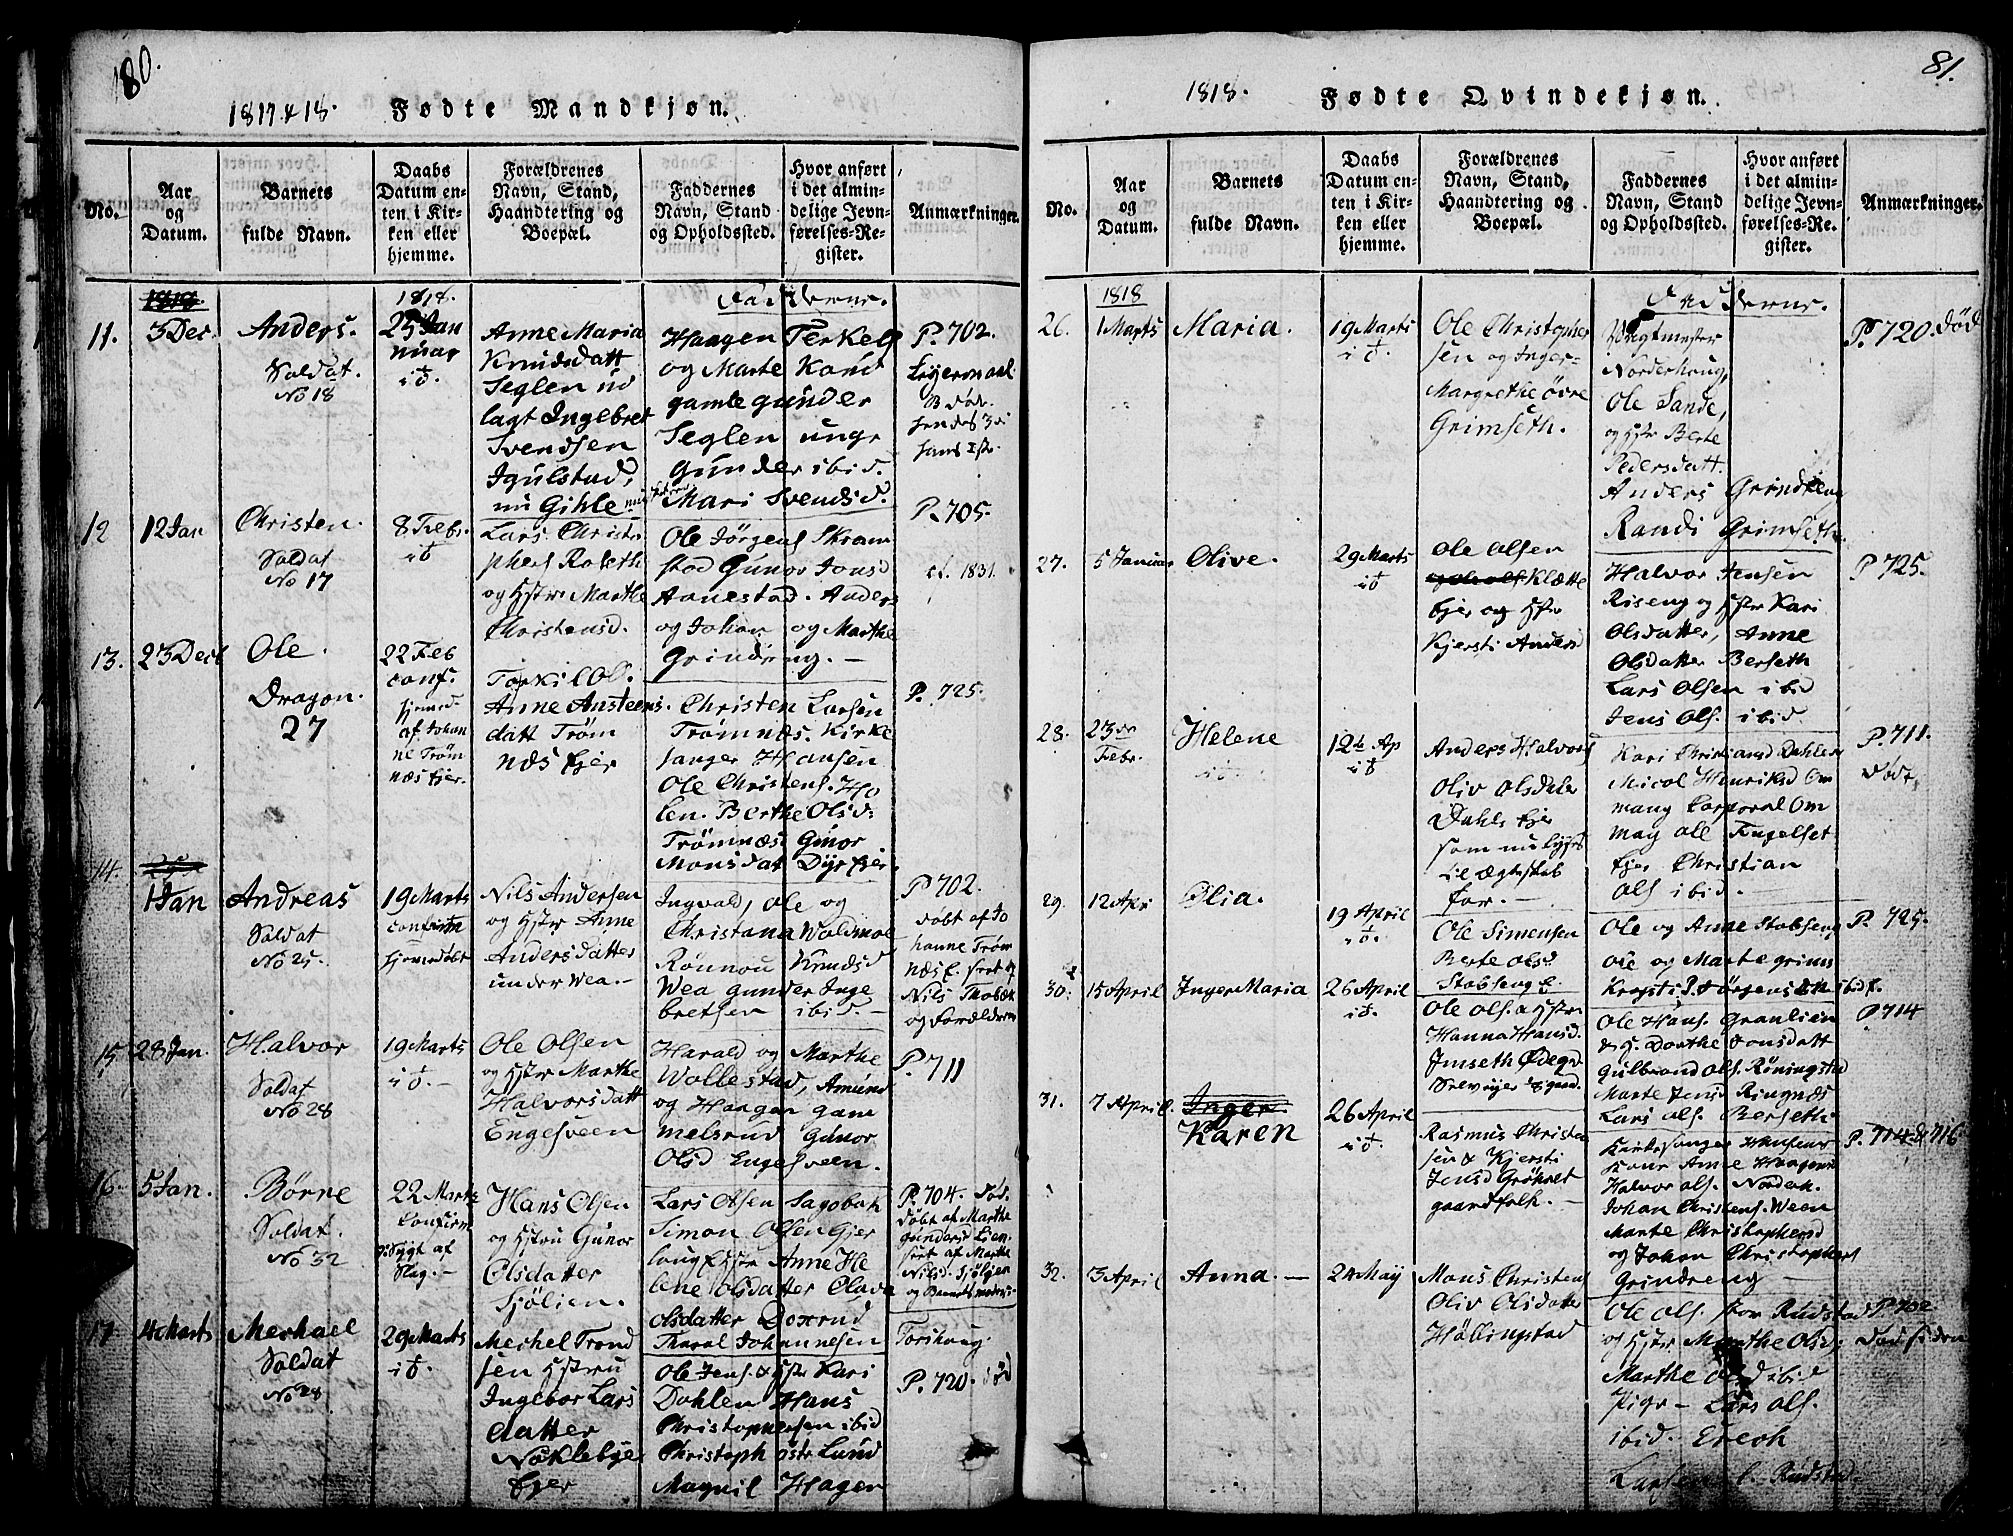 80.
1817 & 18. Fødte Mandkjøn.
No.
Aar
og
Datum.
Barnets
fulde Navn.
Daabs
Datum en-
ten i Kir-
ken eller
hjemme.
Forældrenes
Navn, Stand,
Haandtering og
Boepæl.
Faddernes
Navn, Stand
og Opholdssted.
Hvor anført
i det almin-
delige Jevn-
førelses-Re-
gister.
Anmærkninger.
Fadderne.
11.
3 Dec.
Anders.
Soldat.
No 18
1818.
25 Jan
nuar
Anne Maria
Knudsdatt
Seglen ud
lagt Ingebret
Svendsen
Igulstad,
nu Gihle
Haagen Terkels
og Marte Kond
gamle Gunder
Seglen unge
Gunder ibid.
Mari Svendsd.
P. 702.
Leyermaal
12
12 Jan
Christen.
Soldat
No 17
8 Febr.
Lars Christo
phers Roseth
og Hstr Marthe
Christensd.
Ole Jörgens Skram
stad Gunor Jonsd
Aanestad. Anders
og Johan og Marthe
Grindeng. -
P. 705.
cf. 1831.
13.
23 Decb
Ole.
Dragon.
27
22 Feb
conf.
hjemmed.
af Johan
ne Tröm
næs ejer.
Torkil Ol.
Anne Ansteens.
datt Tröm
næs Ejer
Christen Larsen
Trömnæs. Kirke
sanger Hansen
Ole Christens. Ho
len. Berthe Olsd:
Trömnæs Gunor
Monsdat Dyr Ejer
P. 725.
14.
1 Jan
Andreas
Soldat
No 25.
19 Marts
hjemmedøbt
Nils Andersen
og Hstr Anne
Andersdatter
under Wea. -
Ingvald, Ole og
Christiana Woldmoe
Rönnou Knudsd
Wea Gunder Inge
bretsen ibid. -
P 702.
døbt af Jo
hanne Tröm
Nils Thobæk
og Forældrene
15
28 Jan.
Halvor
Soldat
No 28
19 Marts
Ole Olsen
og Hstr Marthe
Halvorsdatt
Engesveen
Harald og Marthe
Wollestad, Amund
og Haagen gam
melsrud Gunor
Olsd Engesveen.
P. 711
16.
5 Jan.
Börre
Soldat.
No 32
22 Marts
Confirm
Hans Olsen
og Hstru Gunor
Olsdatter
Sjölien.
Lars Olsen Sagobak
Simon Olsen Gjer
Hstr Anne He
lene Olsdatter Olava
Olsdatter Doxrud
Tharal Johannesen
Torshoug.
P. 704. død.
døbt af Marthe
Gundersd Lien
17
4 Marts
Mechael
Soldat
No 28
29 Marts
Mechel Trond
sen Hstru
Ingebor Lars
datter
Noklebye
Ejer
Ole Jens. & Hstr Kari
Dahlen Hans
Christophersen ibid
Christoph östr Lund
Magnil Hagen
P. 720. død
81.
1818. Fødte Qvindekjøn.
No.
Aar
og
Datum.
Barnets
fulde Navn.
Daabs
Datum en-
ten i Kir-
ken eller
hjemme.
Forældrenes
Navn, Stand,
Haandtering og
Boepæl.
Faddernes
Navn, Stand
og Opholdssted.
Hvor anført
i det almin-
delige Jevn-
førelses-Re-
gister.
Anmærkninger.
Fadderne.
1818
26.
1 Marts
Maria.
19 Marts
Ole Christopher
sen og Inger
Margrethe övre
Grimseth.
Vagtmester
Norderhoug,
Ole Sande,
og Hstr Berte
Pedersdatt.
Anders Grindeng
Randi Grimseth.
P. 720. død
27.
5 Januar
Olive.
29 Marts
Ole Olsen
Klætte
Ejer og Hstr
Kjersti Andersd
Halvor Jensen
Riseng og Hstr Kari
Olsdatter, Anne
Olsdatter Berseth
Lars Olsen ibid
Jens Ols. ibid.
P 725.
28.
23de
Febr.
Helene
12te Ap
Anders Halvors
Oliv Olsdatter
Dahls Ejer
som nu lyses
til Ægteskab
for. -
Kari Christiansd Dahlen
Micol Henriksd Om
mang Corporal Om
mag Ole Engelset
Ejer Christian
Ols ibid. -
P. 711.
død.
29.
12 Apr
Olia.
19 April
Ole Simensen
Berte Olsd
Stobseng E.
Ole og Anne Stobseng
Ole og Marte Grims
P. 725.
30.
15 April
Inger Maria
26 April
Ole Ols. & Hstru
Hanna Hansd.
Imseth Ödegd
Ole Hans. Granlien
& H. Dorthe Jonsdatt
Gulbrand Ols. Röningstad
Marte Jensd Ringnæs
Lars Ols. Berseth
P 714
31.
7 April.
Inger
Karen
26 April
Rasmus Christen
sen & Kjersti
Jensd Gröhret
gaardfolk. -
Kirkesanger Hansens
Kone Anne Haagensd
Halvor Ols. Norderh.
Johan Christens. Ween
Marte Christophersd
og Johan Christophers
Grindreng -
P. 714 & 716
32.
3 April
Anna. -
24 May
Mons Christens
Oliv Olsdatter
Hollingstad
Ole Ols. stor Rudstad
og Hstr Marthe Olsd
Marthe Olsd ibid
Pige - Lars Ols.
ibid. Ereck
Larsen Rudstad
P 702
død siden